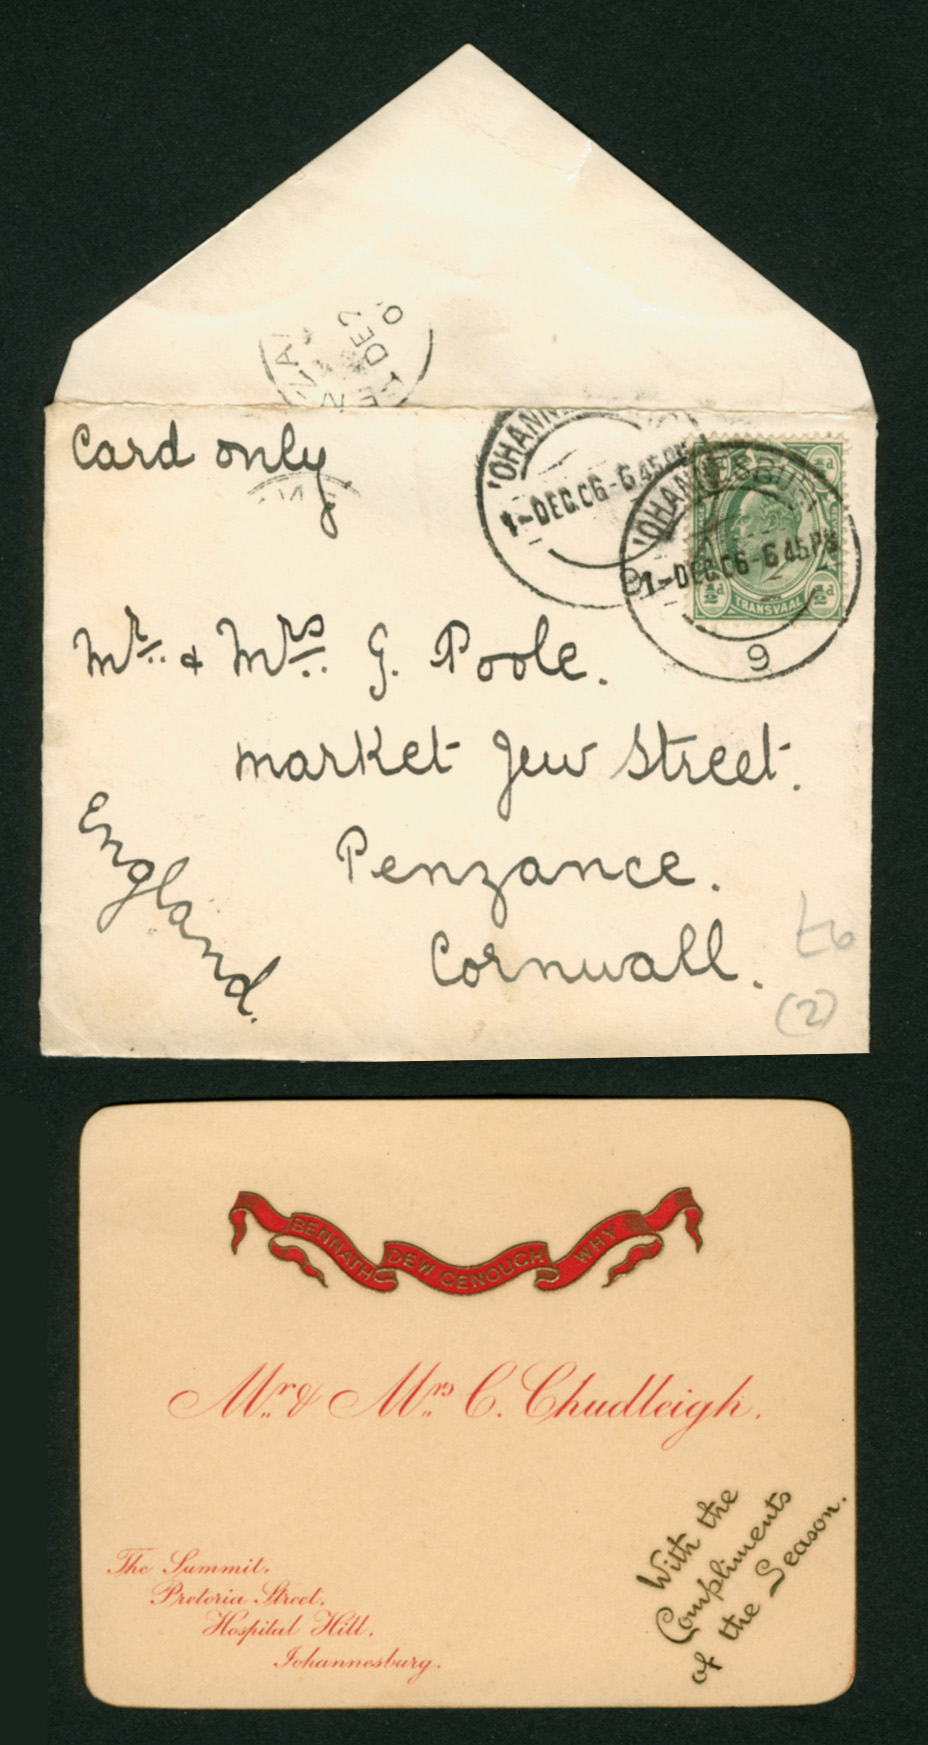 Card only
JOHANN
1-DEC.06-6.45PM
JOHANNESBURG
1-DEC.06-6.45PM
9
TRANSVAAL
½d
½d
DE2
Mr. & Mrs. G. Poole.
Market Jew Street.
Penzance.
Cornwall.
England.
£6
(2)
BENNATH DEW GENOUGH WHY
Mr. & Mrs. C. Chudleigh.
The Summit,
Pretoria Street,
Hospital Hill,
Johannesburg.
With the
Compliments
of the Season.